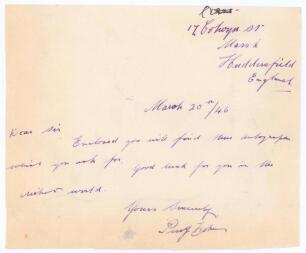 17 Colwyn St
Marsh
Huddersfield
England
March 20th/46
Dear Sir
Enclosed you will find the autographs
which you ask for. Good luck for you in the
world.
Yours Sincerely